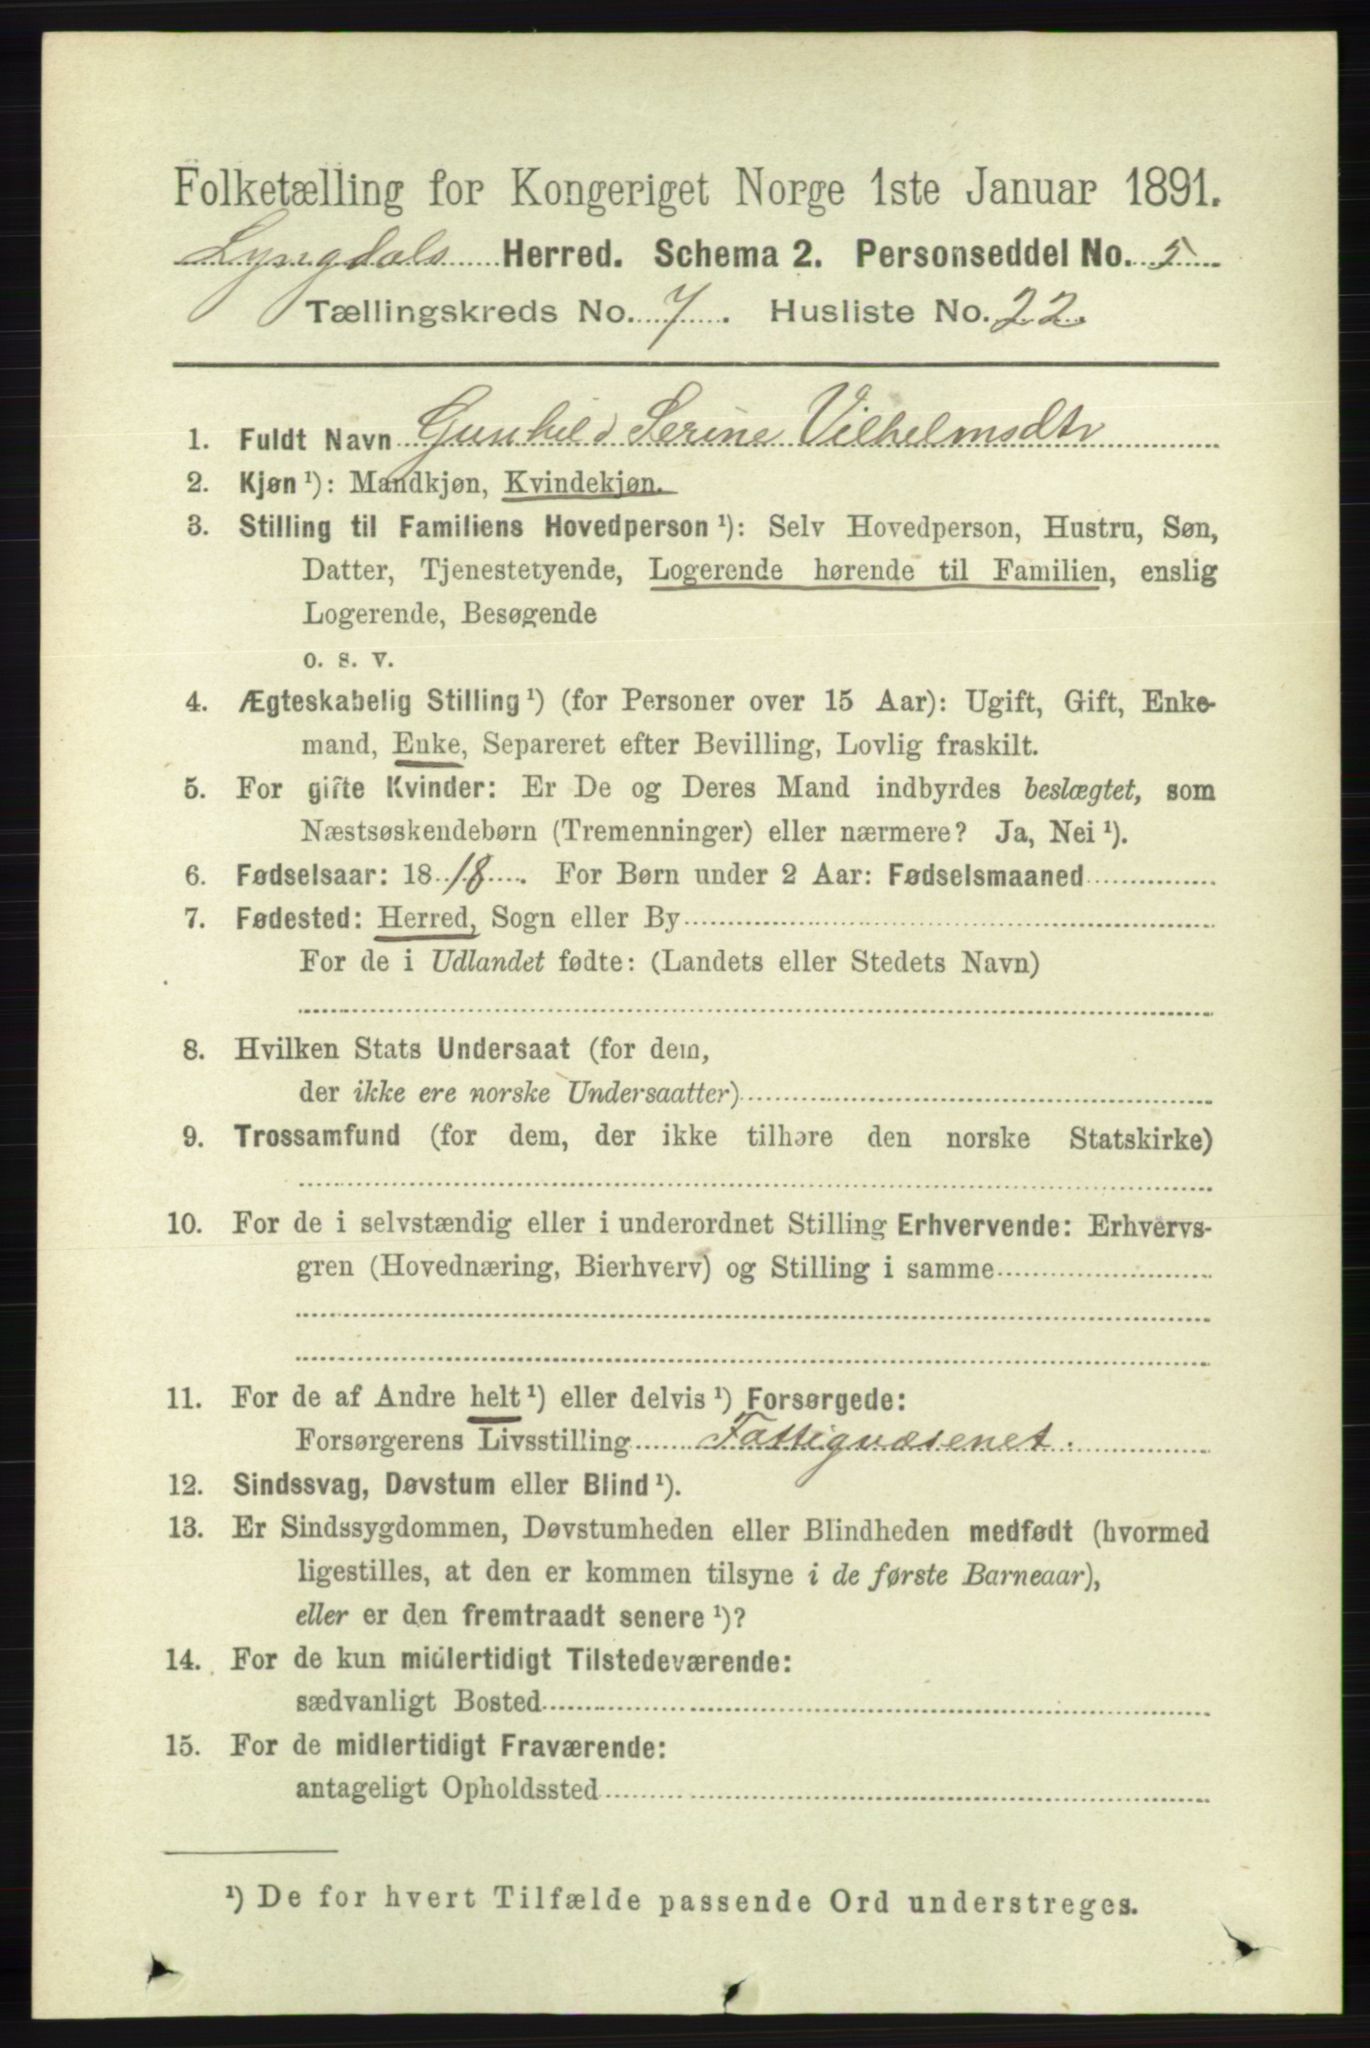 Folketælling for Kongeriget Norge 1ste Januar 1891.
Lyngdals Herred. Schema 2. Personseddel No. 5
Tællingskreds No. 7. Husliste No. 22.
1. Fuldt Navn Gunhild Serine Vilhelmsdtr
2. Kjøn ¹): Mandkjøn, Kvindekjøn.
3. Stilling til Familiens Hovedperson ¹): Selv Hovedperson, Hustru, Søn,
Datter, Tjenestetyende, Logerende hørende til Familien, enslig
Logerende, Besøgende
o. s. v.
4. Ægteskabelig Stilling ¹) (for Personer over 15 Aar): Ugift, Gift, Enke-
mand, Enke, Separeret efter Bevilling, Lovlig fraskilt.
5. For gifte Kvinder: Er De og Deres Mand indbyrdes beslægtet, som
Næstsøskendebørn (Tremenninger) eller nærmere? Ja, Nei ¹).
6. Fødselsaar: 1818. For Børn under 2 Aar: Fødselsmaaned
7. Fødested: Herred, Sogn eller By
For de i Udlandet fødte: (Landets eller Stedets Navn)
8. Hvilken Stats Undersaat (for dem,
der ikke ere norske Undersaatter)
9. Trossamfund (for dem, der ikke tilhøre den norske Statskirke)
10. For de i selvstændig eller i underordnet Stilling Erhvervende: Erhvervs-
gren (Hovednæring, Bierhverv) og Stilling i samme
11. For de af Andre helt ¹) eller delvis ¹) Forsørgede:
Forsørgerens Livsstilling Fattigvæsenet.
12. Sindssvag, Døvstum eller Blind ¹).
13. Er Sindssygdommen, Døvstumheden eller Blindheden medfødt (hvormed
ligestilles, at den er kommen tilsyne i de første Barneaar),
eller er den fremtraadt senere ¹)?
14. For de kun midlertidigt Tilstedeværende:
sædvanligt Bosted
15. For de midlertidigt Fraværende:
antageligt Opholdssted
¹) De for hvert Tilfælde passende Ord understreges.